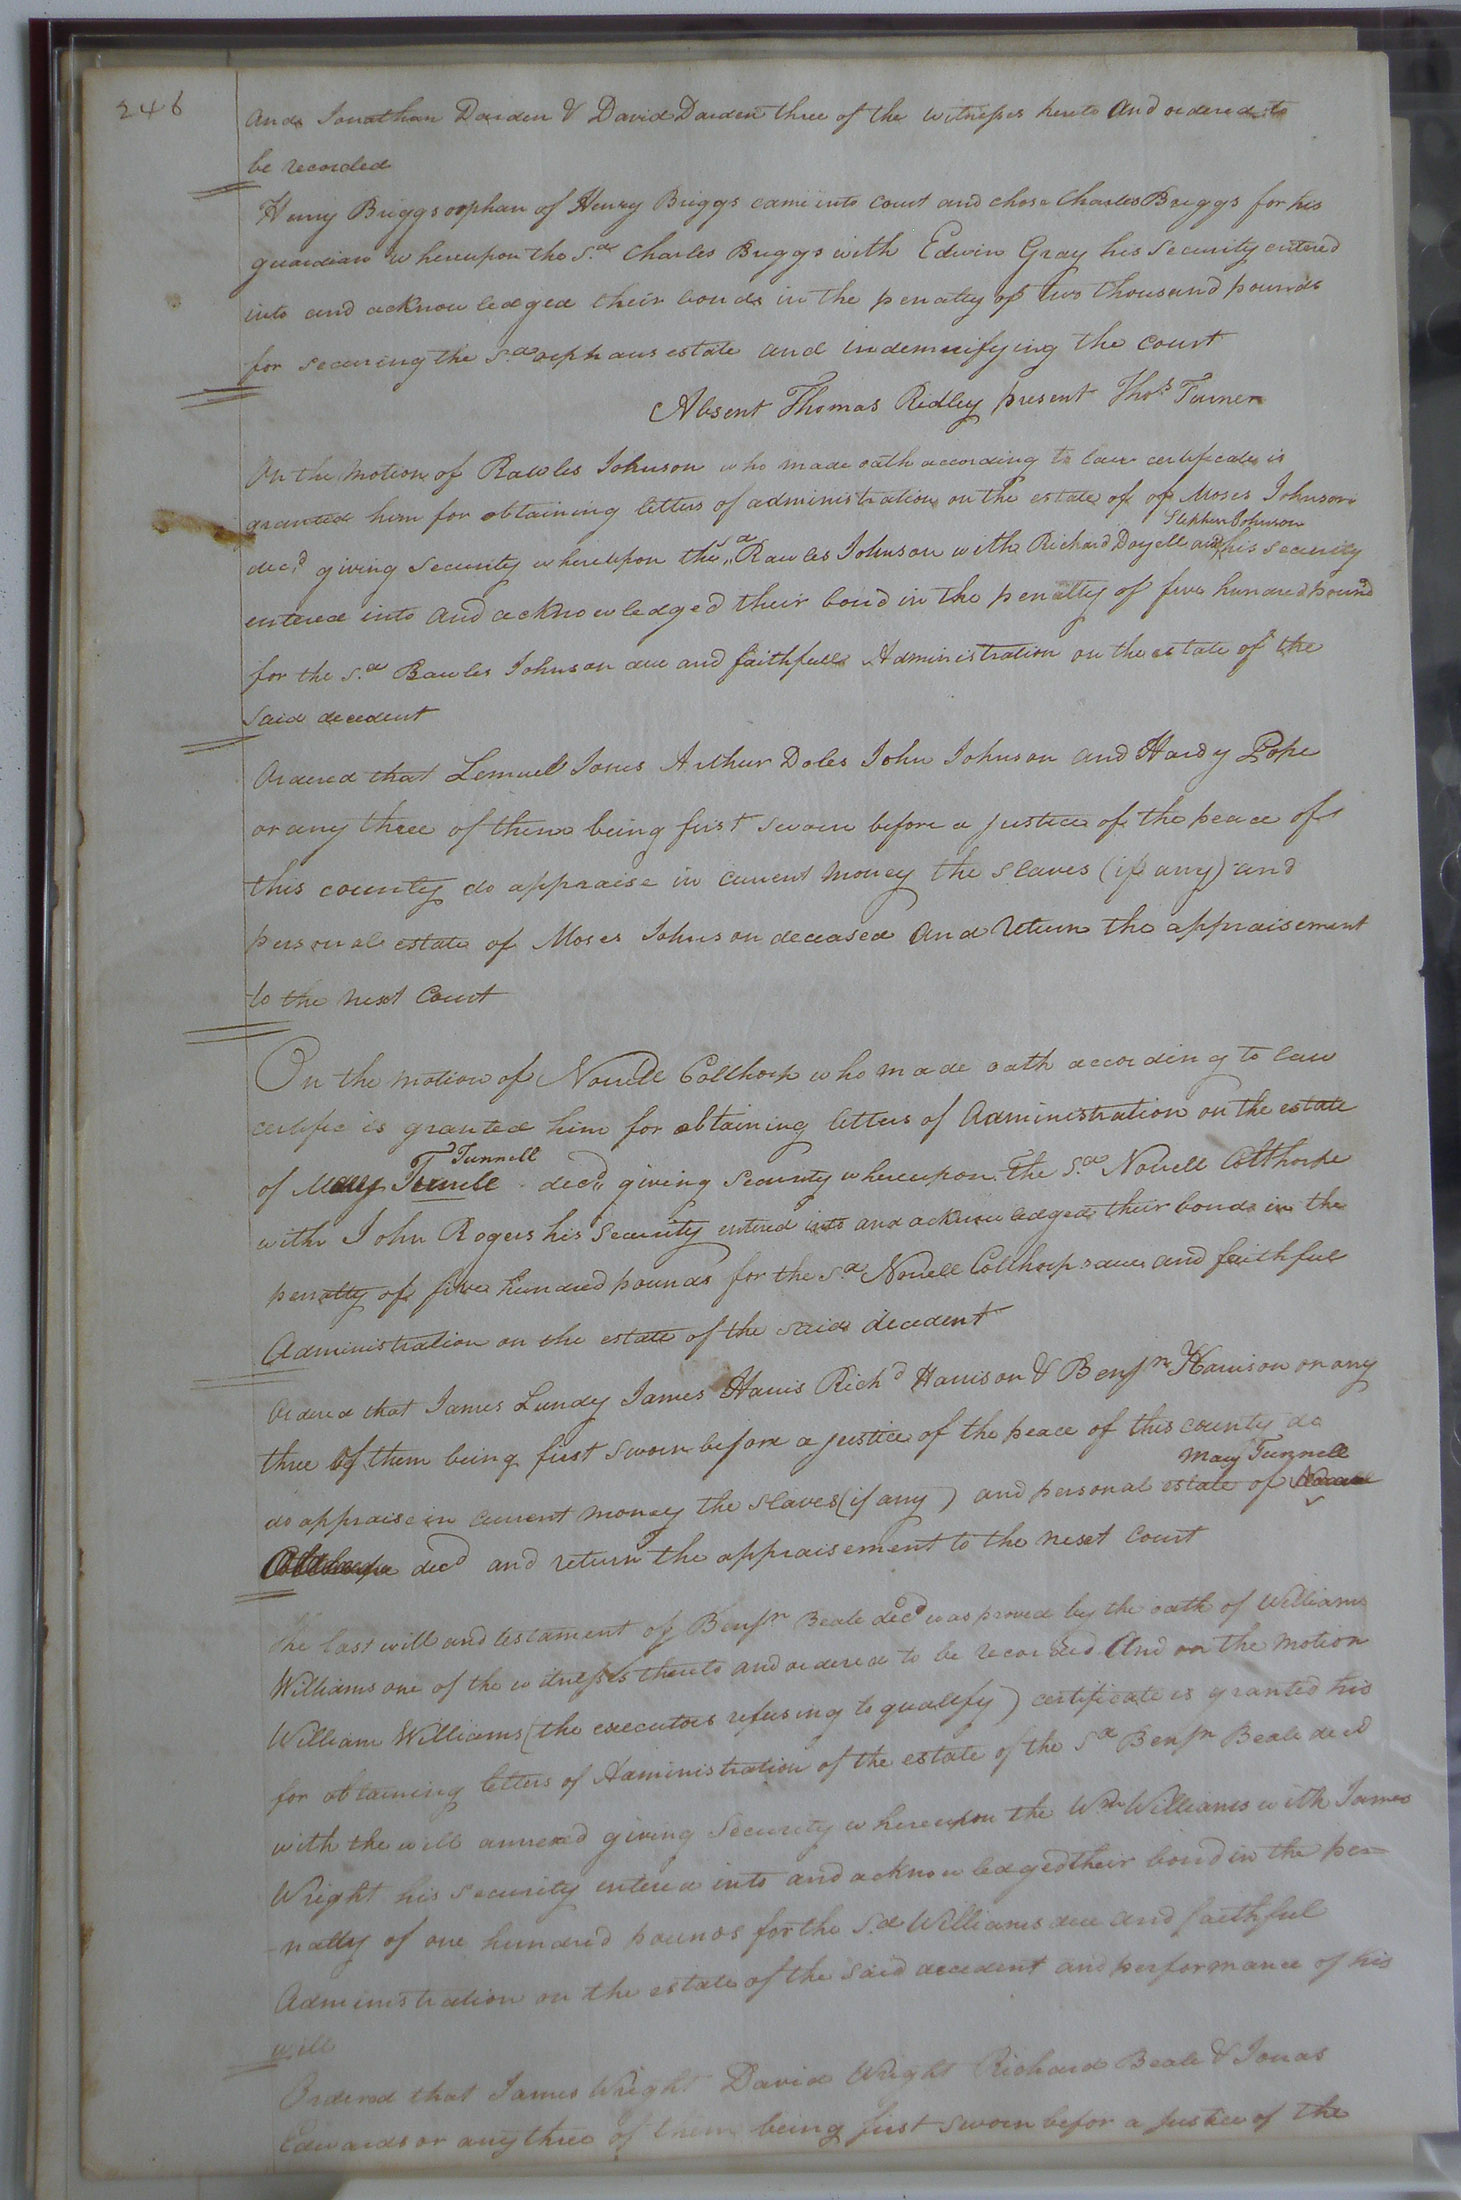 246
and Jonathan Darden & David Darden three of the witnesses hereto and ordered to
be recorded
Henry Briggs orphan of Henry Briggs came into court and chose Charles Briggs for his
guardian whereupon the s.d Charles Briggs with Edwin Gray his security entered
into and acknowledged their bonds in the penalty of two thousand pounds
for securing the s.d orphans estate and indemnifying the court
Absent Thomas Ridley present Thos. Turner
On the motion of Rawles Johnson who made oath according to law certificate is
granted him for obtaining letters of administration on the estate of of Moses Johnson
Stephen Johnson
dec.d giving security whereupon the s.d Rawles Johnson with Richard Doyell and his security
entered into and acknowledged their bond in the penalty of five hundred pound
for the s.d Rawles Johnson due and faithfull Administration on the estate of the
said decedent
Ordered that Lemuel Jones Arthur Doles John Johnson and Hardy Pope
or any three of them being first sworn before a justice of the peace of
this county do appraise in current money the slaves (if any) and
personal estate of Moses Johnson deceased and return the appraisement
to the next Court
On the motion of Novell Colthorp who made oath according to law
certific is granted him for obtaining letters of Administration on the estate
Tunnell
of Mary dec.d giving security whereupon the s.d Novell Colthorpe
with John Rogers his security entered into and acknowledged their bonds in the
penalty of five hundred pounds for the s.d Novell Colthorps due and faithful
Administration on the estate of the said decedent
Ordered that James Lundy James Harris Rich.d Harrison & Benj.n Harrison or any
three of them being first sworn before a justice of the peace of this county do
Mary Tunnell
do appraise in current money the slaves (if any) and personal estate of
Colthorpe dec.d and return the appraisement to the next Court
The last will and testament of Benj.n Beale dec.d was proved by the oath of William
Williams one of the witnesses thereto and ordered to be recorded And on the motion
William Williams (the executors refusing to qualify) certificate is granted his
for obtaining letters of Administration of the estate of the s.d Benj.n Beale dec.d
with the will annexed giving security whereupon the W.m Williams with James
Wright his security entered into and acknowledged their bond in the pe=
nalty of one hundred pounds for the s.d Williams due and faithful
Administration on the estate of the said decedent and performance of his
will
Ordered that James Wright David Wright Richard Beale & Jonas
Edwards or any three of them being first sworn befor a justice of the